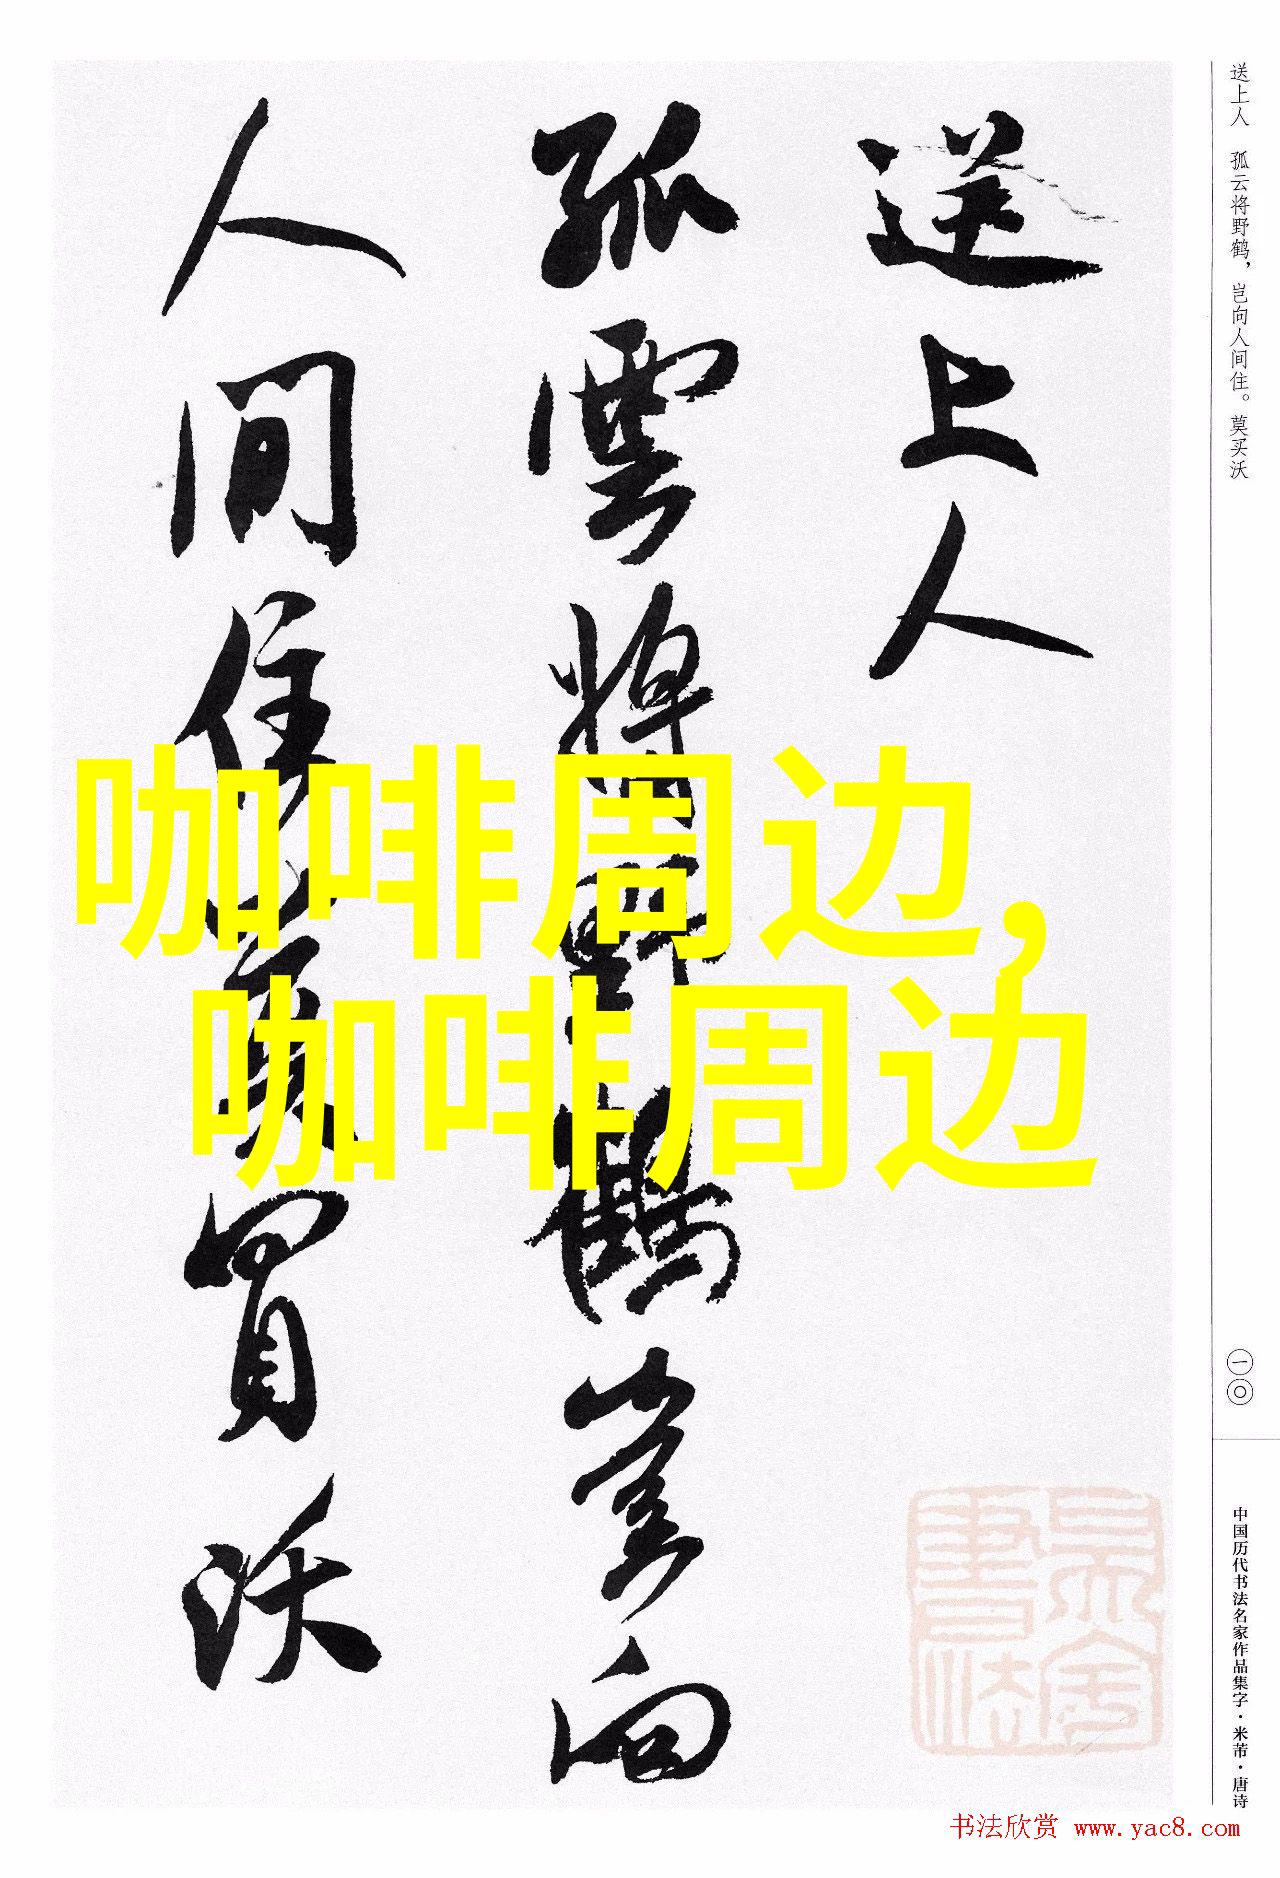 送上人
孤雲将野鶴豈向
人间住莫買沃
咖啡周边，
咖啡周边
送上人 孤云将野鹤，岂向人间住。莫买沃
一〇
中国历代书法名家作品集字·米芾·唐诗
书法欣赏 www.yac8.com